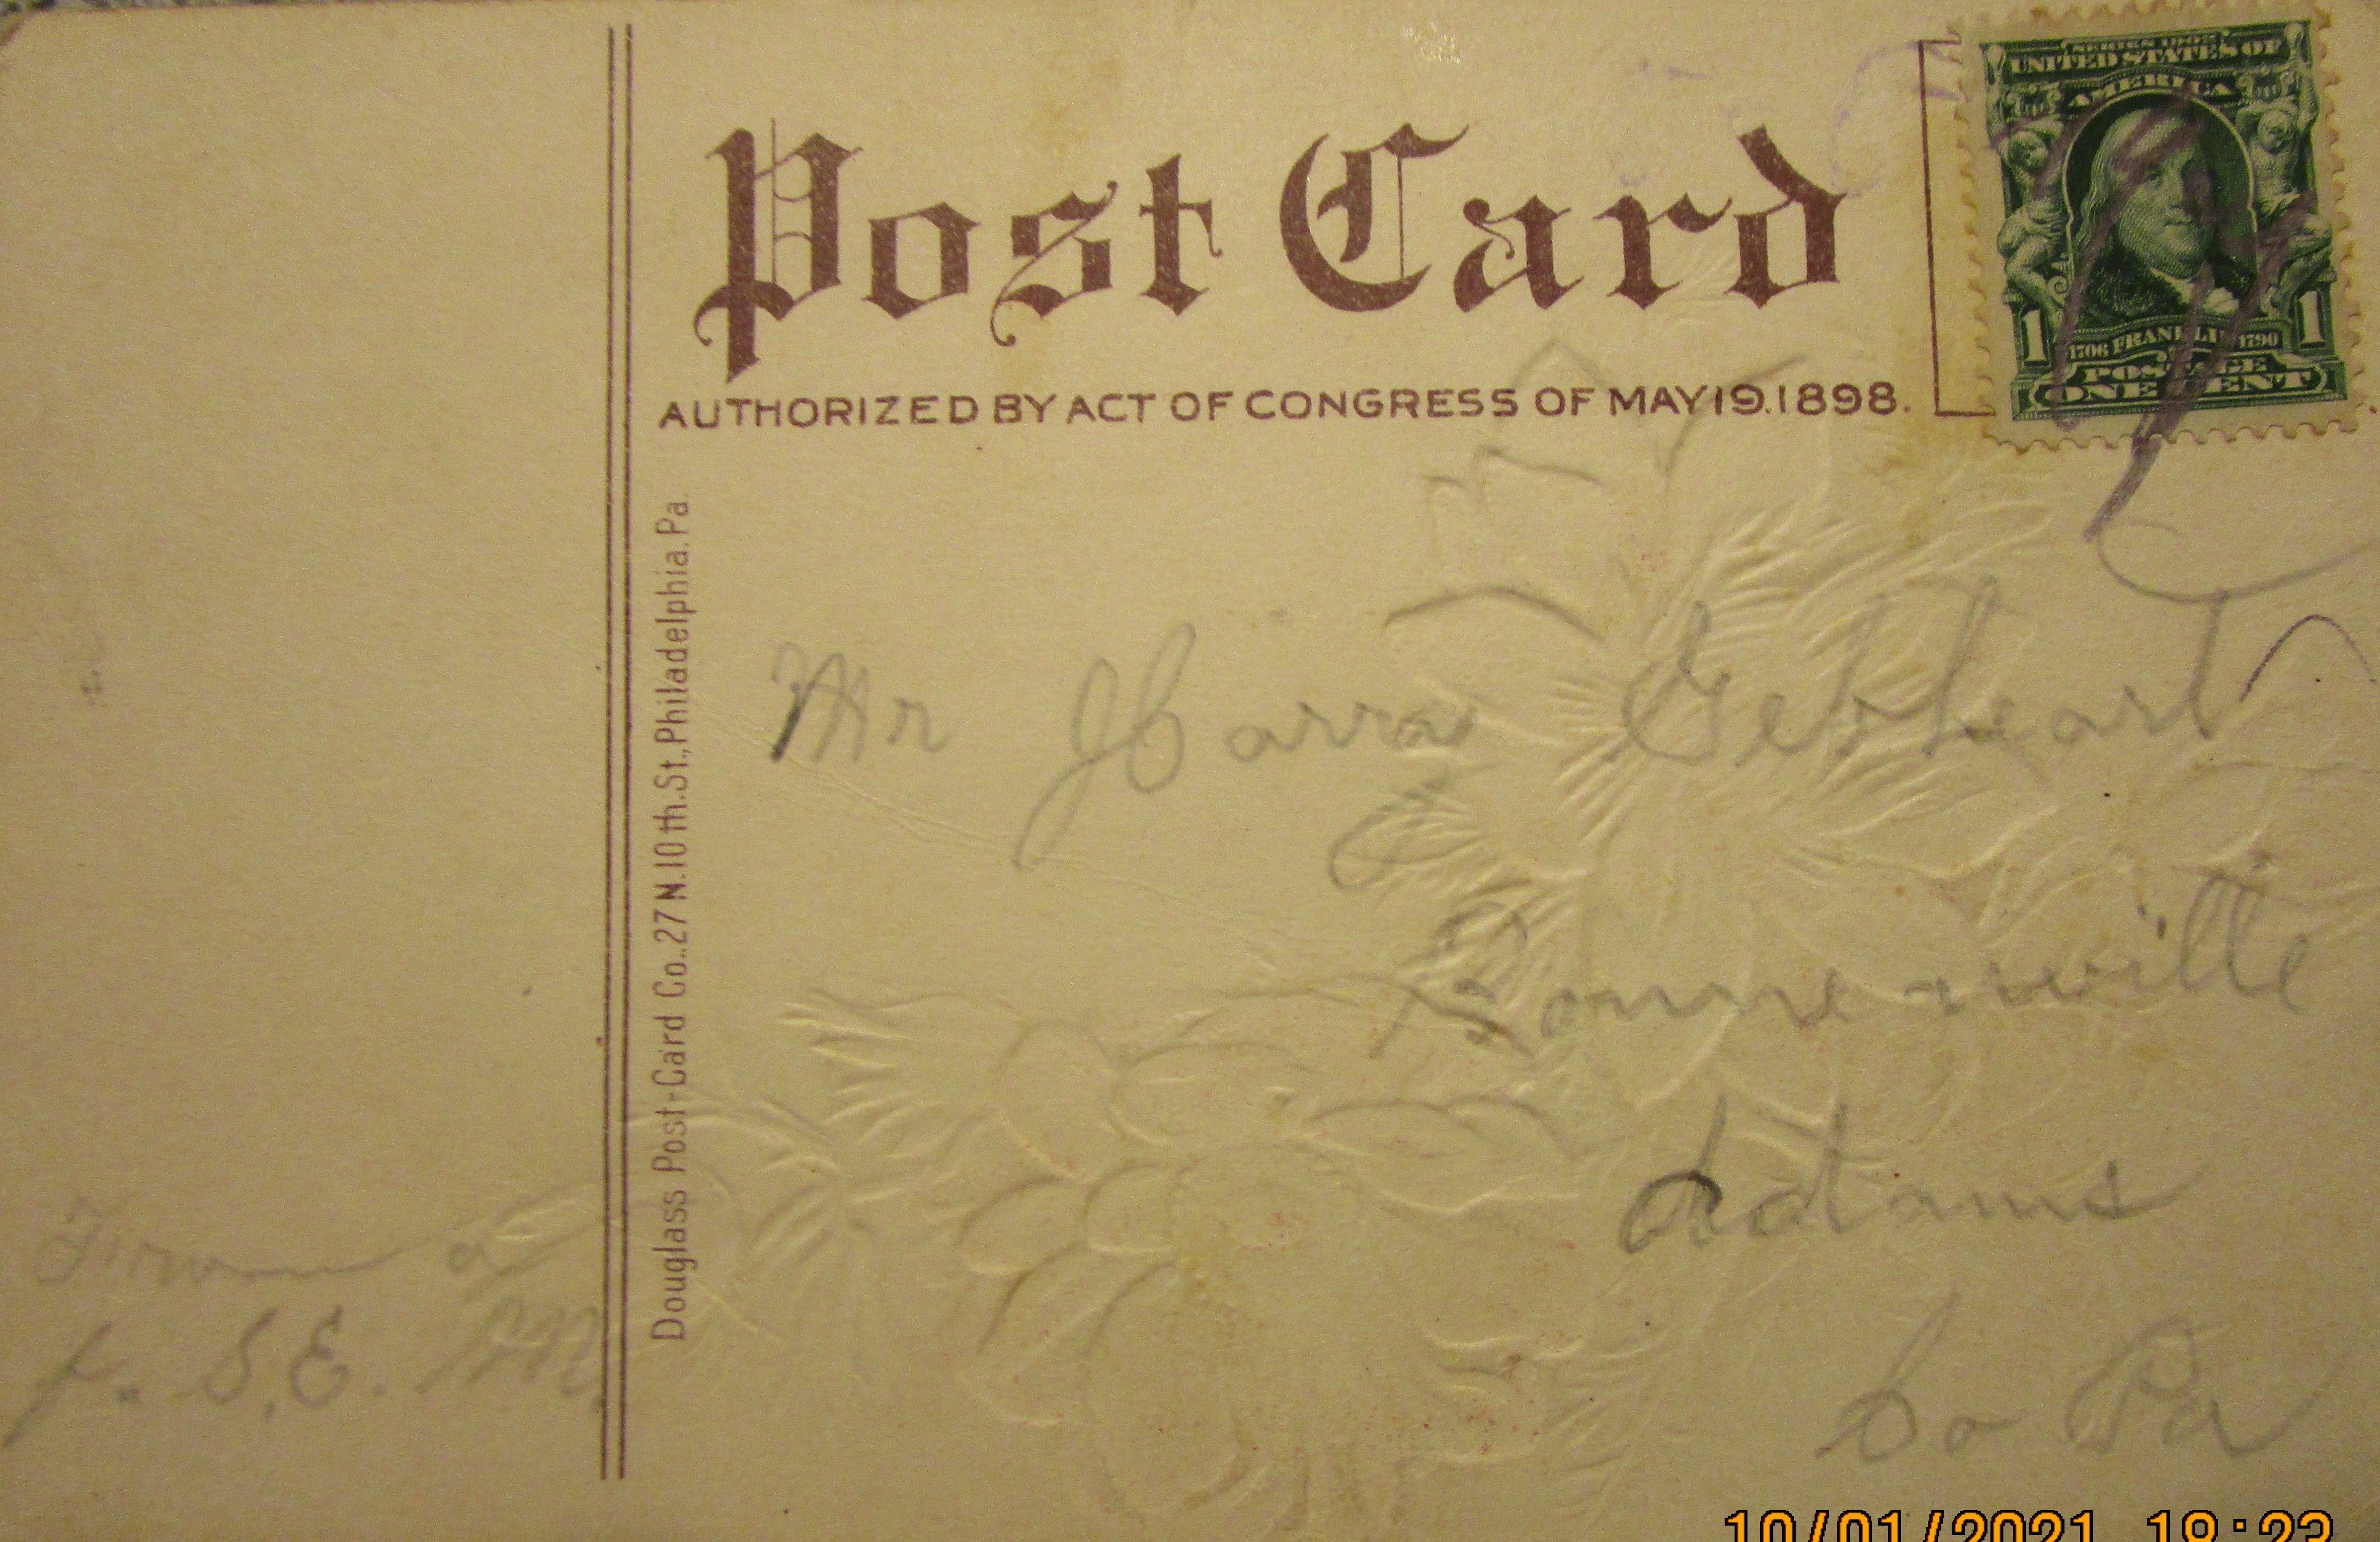 Post Card
AUTHORIZED BY ACT OF CONGRESS OF MAY 19. 1898.
SERIES 1902
UNITED STATES OF
AMERICA
1 1
1706 FRANKLIN 1790
POSTAGE
ONE CENT
Douglass Post-Card Co., 27 N. 10th. St., Philadelphia, Pa.
Mr Harry Gebheart
Adams
Co Pa
From a
f. S. E. M.
10/01/2021 18:23